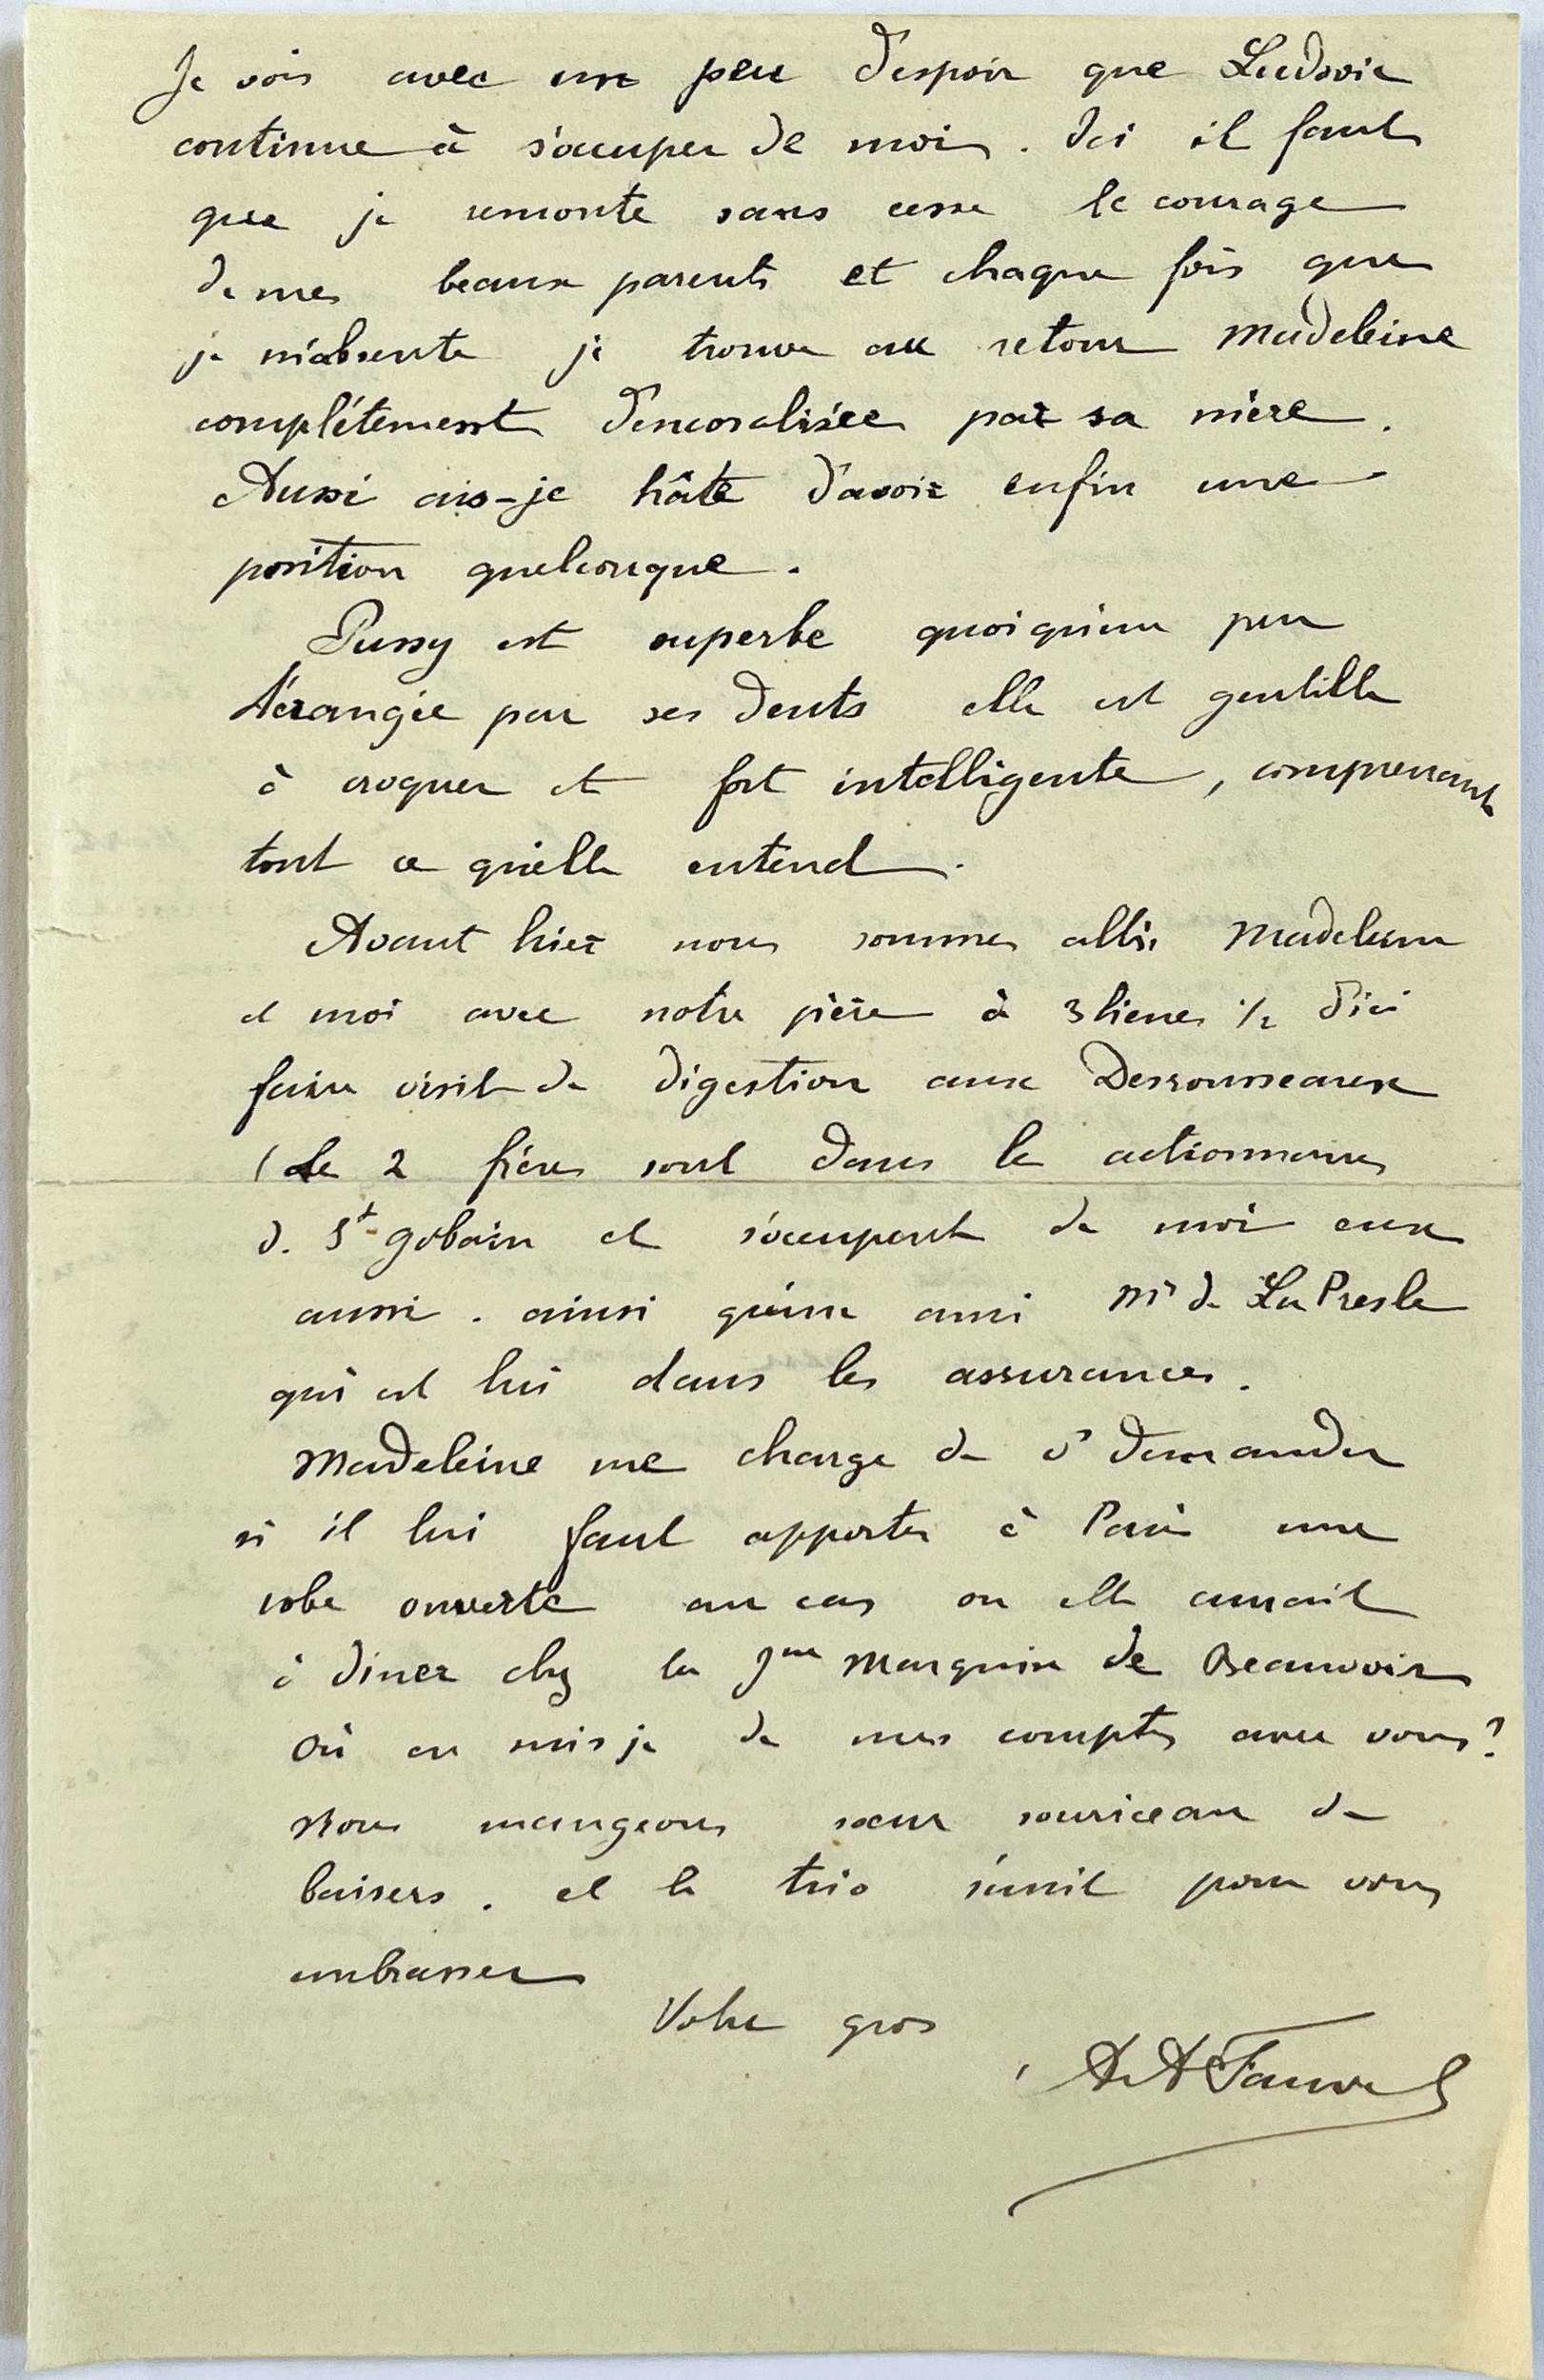 Je vois avec un peu d'espoir que Ludovic
continue à s'occuper de moi. Ici il faut
que je remonte sans cesse le courage
de mes beaux parents et chaque fois que
je m'absente je trouve au retour Madeleine
complétement démoralisée par sa mère.
Aussi ais-je hâte d'avoir enfin une
position quelconque.
Pussy est superbe quoiqu'un peu
dérangée par ses dents elle est gentille
à croquer et fort intelligente, comprenant
tout ce qu'elle entend.
Avant hier nous sommes allés Madeleine
et moi avec notre père à 3 lieues 1/2 d'ici
faire visite de digestion aux Desrousseaux
(les 2 frères sont dans les actionnaires
d. St Gobain et s'occupent de moi eux
aussi. ainsi qu'un ami Mr de La Presle
qui est lui dans les assurances.
Madeleine me charge de vs demander
si il lui faut apporter à Paris une
robe ouverte au cas ou elle aurait
à diner chez la Jne Marquise de Beauvoir
Où en suis je de mes comptes avec vous?
Nous mangeons soeur souriceau de
baisers. et le trio s'unit pour vous
embrasser
Votre gros
A A Fauvel